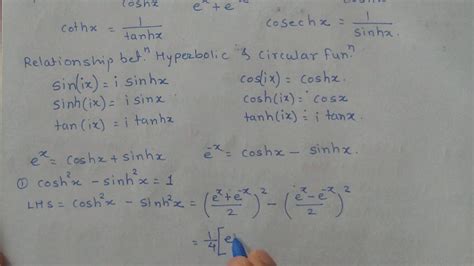 coshx e^x + e^-x
cothx = 1/tanhx cosechx = 1/sinhx.
Relationship betⁿ Hyperbolic & Circular funⁿ
sin(ix) = i sinhx cos(ix) = coshx.
sinh(ix) = i sinx cosh(ix) = cosx
tan(ix) = i tanhx tanh(ix) = i tanx.
e^x = coshx + sinhx e^-x = coshx - sinhx.
① cosh²x - sinh²x = 1
LHS = cosh²x - sinh²x = ((e^x + e^-x)/2)² - ((e^x - e^-x)/2)²
= 1/4 [e